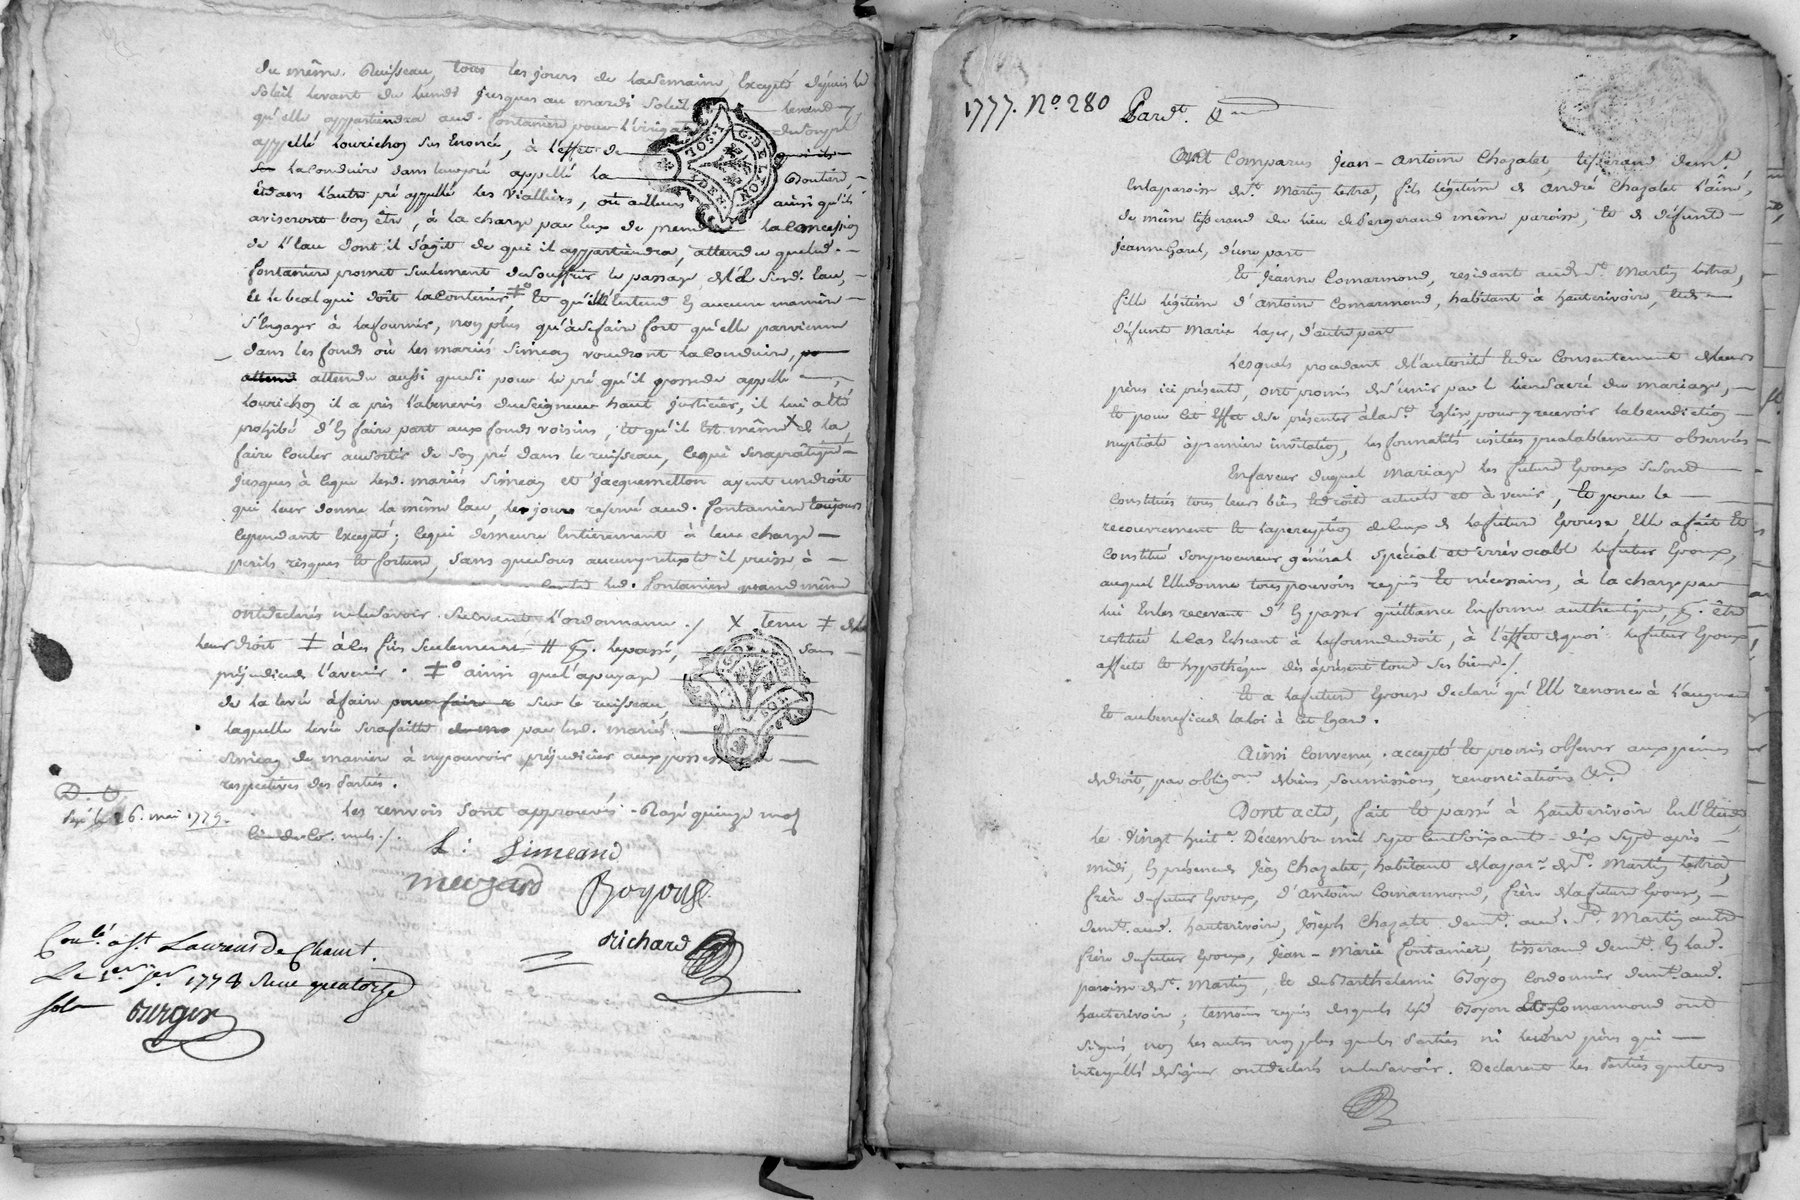 du même Ruisseau, tous les jours de la semaine, Excepté depuis le
soleil levant du lundi jusques au mardi soleil levand
qu'elle appartiendra aud. fontanier pour l'irrigat du son pré
appellé Lourichon sus Enoncé, à l'effet de
la Conduire dans leur pré appellé la Goutière,
Et dans l'autre pré appellé les Vialliers, où ailleurs ainsi qu'ils
aviseront bon être, à la charge par Eux de prendre la Concession
de l'Eau dont il s'agit de qui il appartiendra, attendu que led.
fontanier promet seulement de souffrir le passage de lad. Eau,
Et le beal qui doit la Contenir, Et qu'il n'Entend En aucune manière
s'Engager à la fournir, non plus qu'à se faire fort qu'elle parvienne
dans les fonds où les mariés Simean voudront la Conduire, po
attend attendu aussi que si pour le pré qu'il possede appellé
Lourichon il a pris l'abenevis du seigneur haut justicier, il lui a Eté
prohibé d'En faire part aux fonds voisins, Et qu'il Est même X de la
faire Couler au sortir de son pré dans le ruisseau, Ce qui sera pratiqué
jusques à Ce que lesd. mariés Simean et Jacquemetton ayent un droit
qui leur donne la même Eau, les jours reservé aud. fontanier toujours
Cependant Excepté; Ce qui demeure Entierement à leur charge
perils risques Et fortune, sans que sous aucun pretexte il puisse à
led. fontanier quand même
ont declarés ne le savoir suivant l'ordonnance ./ X tenu ‡ de la
leur droit ‡ à Ces fins seulement # le passé, sans
préjudice de l'avenir. ‡° ainsi que l'apuyage
de la levée à faire pour faire e sur le ruisseau,
laquelle levée sera faitte de mo par lesd. mariés
Simean de maniere à ne pouvoir préjudicier aux possessions
respectives des Parties.
les renvois sont approuvés. Rayé quinze mots
D. D.
Exp. le 26. mai 1779.
L: Simeand
meyzard Boyoud
Richard
Conlé. à St. Laurens de Chamt.
Le 1er. jer. 1778 Reçu quatorze
sols
Burgex
1777. No. 280 Pardt. &
Ont Comparus Jean-Antoine Chazalet, tisserand demt.
En la paroisse de St. Martin Lestra, fils légitime de André Chazalet l'aîné,
de même tisserand du lieu de Bergerand même paroisse, Et de défunte
Jeanne Garel, d'une part
Et Jeanne Comarmond, residant aud. St. Martin Lestra,
fille légitime d'Antoine Comarmond, habitant à hauterivoire, Et de
défunte Marie Lager, d'autre part
Lesquels procedant de l'autorité Et du Consentement de leurs
pères ici présents, ont promis de s'unir par le lien sacré du mariage,
Et pour Cet Effet de se présenter à la Ste. Eglise, pour y recevoir la benediction
nuptiale à premiere invitation, les formalités usitées prealablement observées
En faveur duquel mariage les futurs Epoux se sont
Constitués tous leurs biens Et droits actuels et à venir, Et pour le
recouvrement Et la perception de Ceux de la future Epouse Elle a fait Et
Constitué son procureur général spécial et irrévocable le futur Epoux,
auquel Elle donne tous pouvoirs requis Et nécessaires, à la charge par
lui En les recevant d'En passer quittance En forme authentique, Et être
restitué le Cas Echeant à la forme du droit, à l'effet de quoi le futur Epoux
affecte Et hypothéque dès à présent tous ses biens ./
Et a la future Epouse declaré qu'Elle renonce à l'augment
Et au benefice de la loi à Cet Egard.
Ainsi Convenu. accepté Et promis observer aux peines
de droit, par obligon. de biens, soumissions, renonciations &a.
Dont acte, fait Et passé à hauterivoire En l'Etude,
le Vingt huite. Décembre mil sept Cent soixante-dix sept après
midi, En présence de Jean Chazalet, habitant de la par. de St. Martin Lestra,
frère du futur Epoux, d'Antoine Comarmond, frère de la future Epouse,
demt. aud. hauterivoire, Joseph Chazalet demt. aud. St. Martin autre
frère du futur Epoux, Jean-Marie fontanier, tisserand demt. En lad.
paroisse de St. Martin, Et de Barthelemi Goyon Cordonnier demt. aud.
hauterivoire; temoins requis desquels led. Goyon Et Comarmond ont
signés, non les autres non plus que les Parties ni leurs pères qui
interpellés de signer ont declarés ne le savoir. Declarent les Parties que leurs